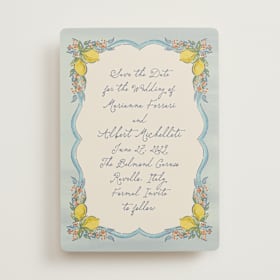 Save the Date
for the Wedding of
Marianne Ferrari
and
Albert Michelletti
June 27,
The Belmond Caruso
Ravello, Italy
Formal Invite
to follow